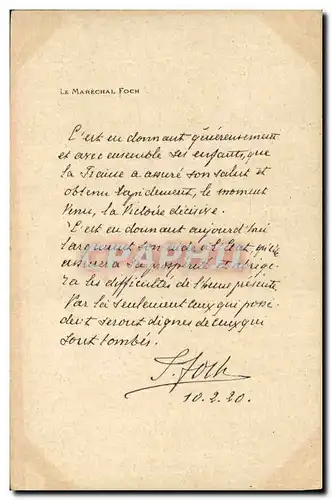 LE MARÉCHAL FOCH
C'est en donnant généreusement
et avec ensemble ses enfants, que
la France a assuré son salut et
obtenu rapidement, le moment
venu, la Victoire décisive.
C'est en donnant aujourd'hui
l'argent son à l'Etat, qu'elle
assurera sa prospérité
ra les difficultés de l'heure présente.
Par là seulement ceux qui possè-
dent seront dignes de ceux qui
sont tombés.
F. Foch
10.2.20.